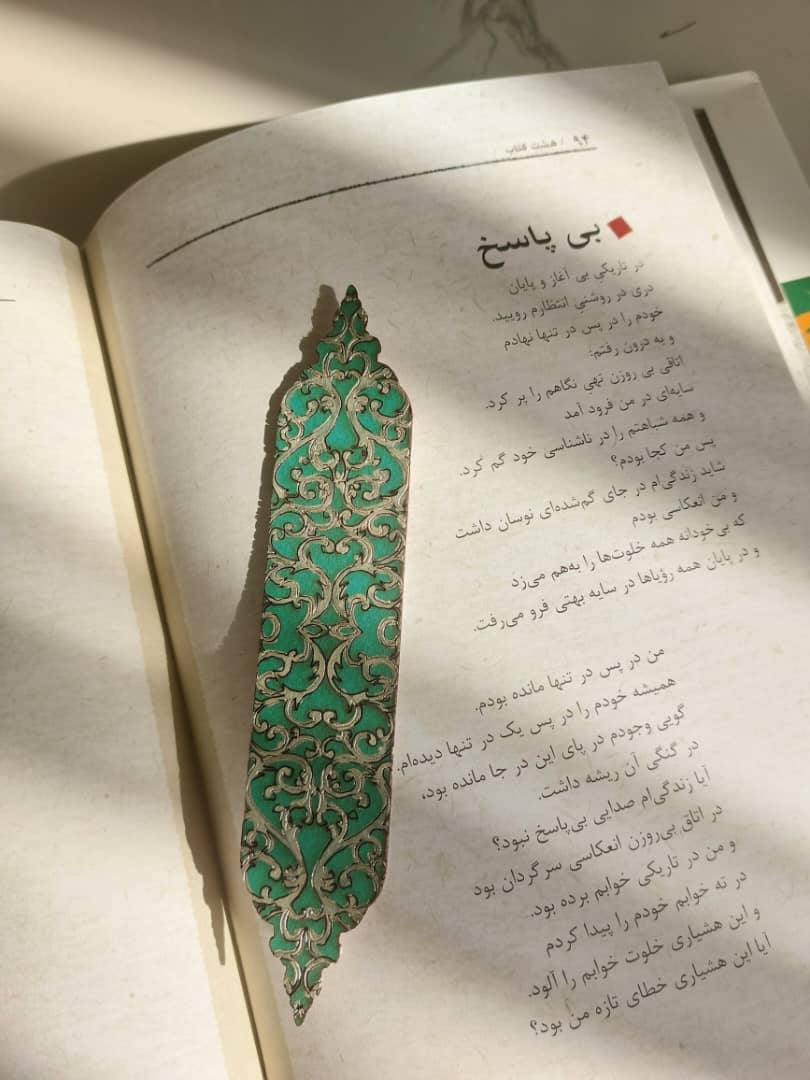 ۹۴ / هشت کتاب
بی پاسخ
در تاریکی بی آغاز و پایان
دری در روشنی انتظارم رویید.
خودم را در پس در تنها نهادم
و به درون رفتم:
اتاقی بی روزن تهیِ نگاهم را پر کرد.
سایه‌ای در من فرود آمد
و همه شباهتم را در ناشناسی خود گم کرد.
پس من کجا بودم؟
شاید زندگی‌ام در جای گم‌شده‌ای نوسان داشت
و من انعکاسی بودم
که بی‌خودانه همه خلوت‌ها را به‌هم می‌زد
و در پایان همه رؤیاها در سایه بهتی فرو می‌رفت.
من در پس در تنها مانده بودم.
همیشه خودم را در پس یک در تنها دیده‌ام.
گویی وجودم در پای این در جا مانده بود،
در گنگی آن ریشه داشت.
آیا زندگی‌ام صدایی بی‌پاسخ نبود؟
در اتاق بی‌روزن انعکاسی سرگردان بود
و من در تاریکی خوابم برده بود.
در ته خوابم خودم را پیدا کردم
و این هشیاری خلوت خوابم را آلود.
آیا این هشیاری خطای تازه من بود؟